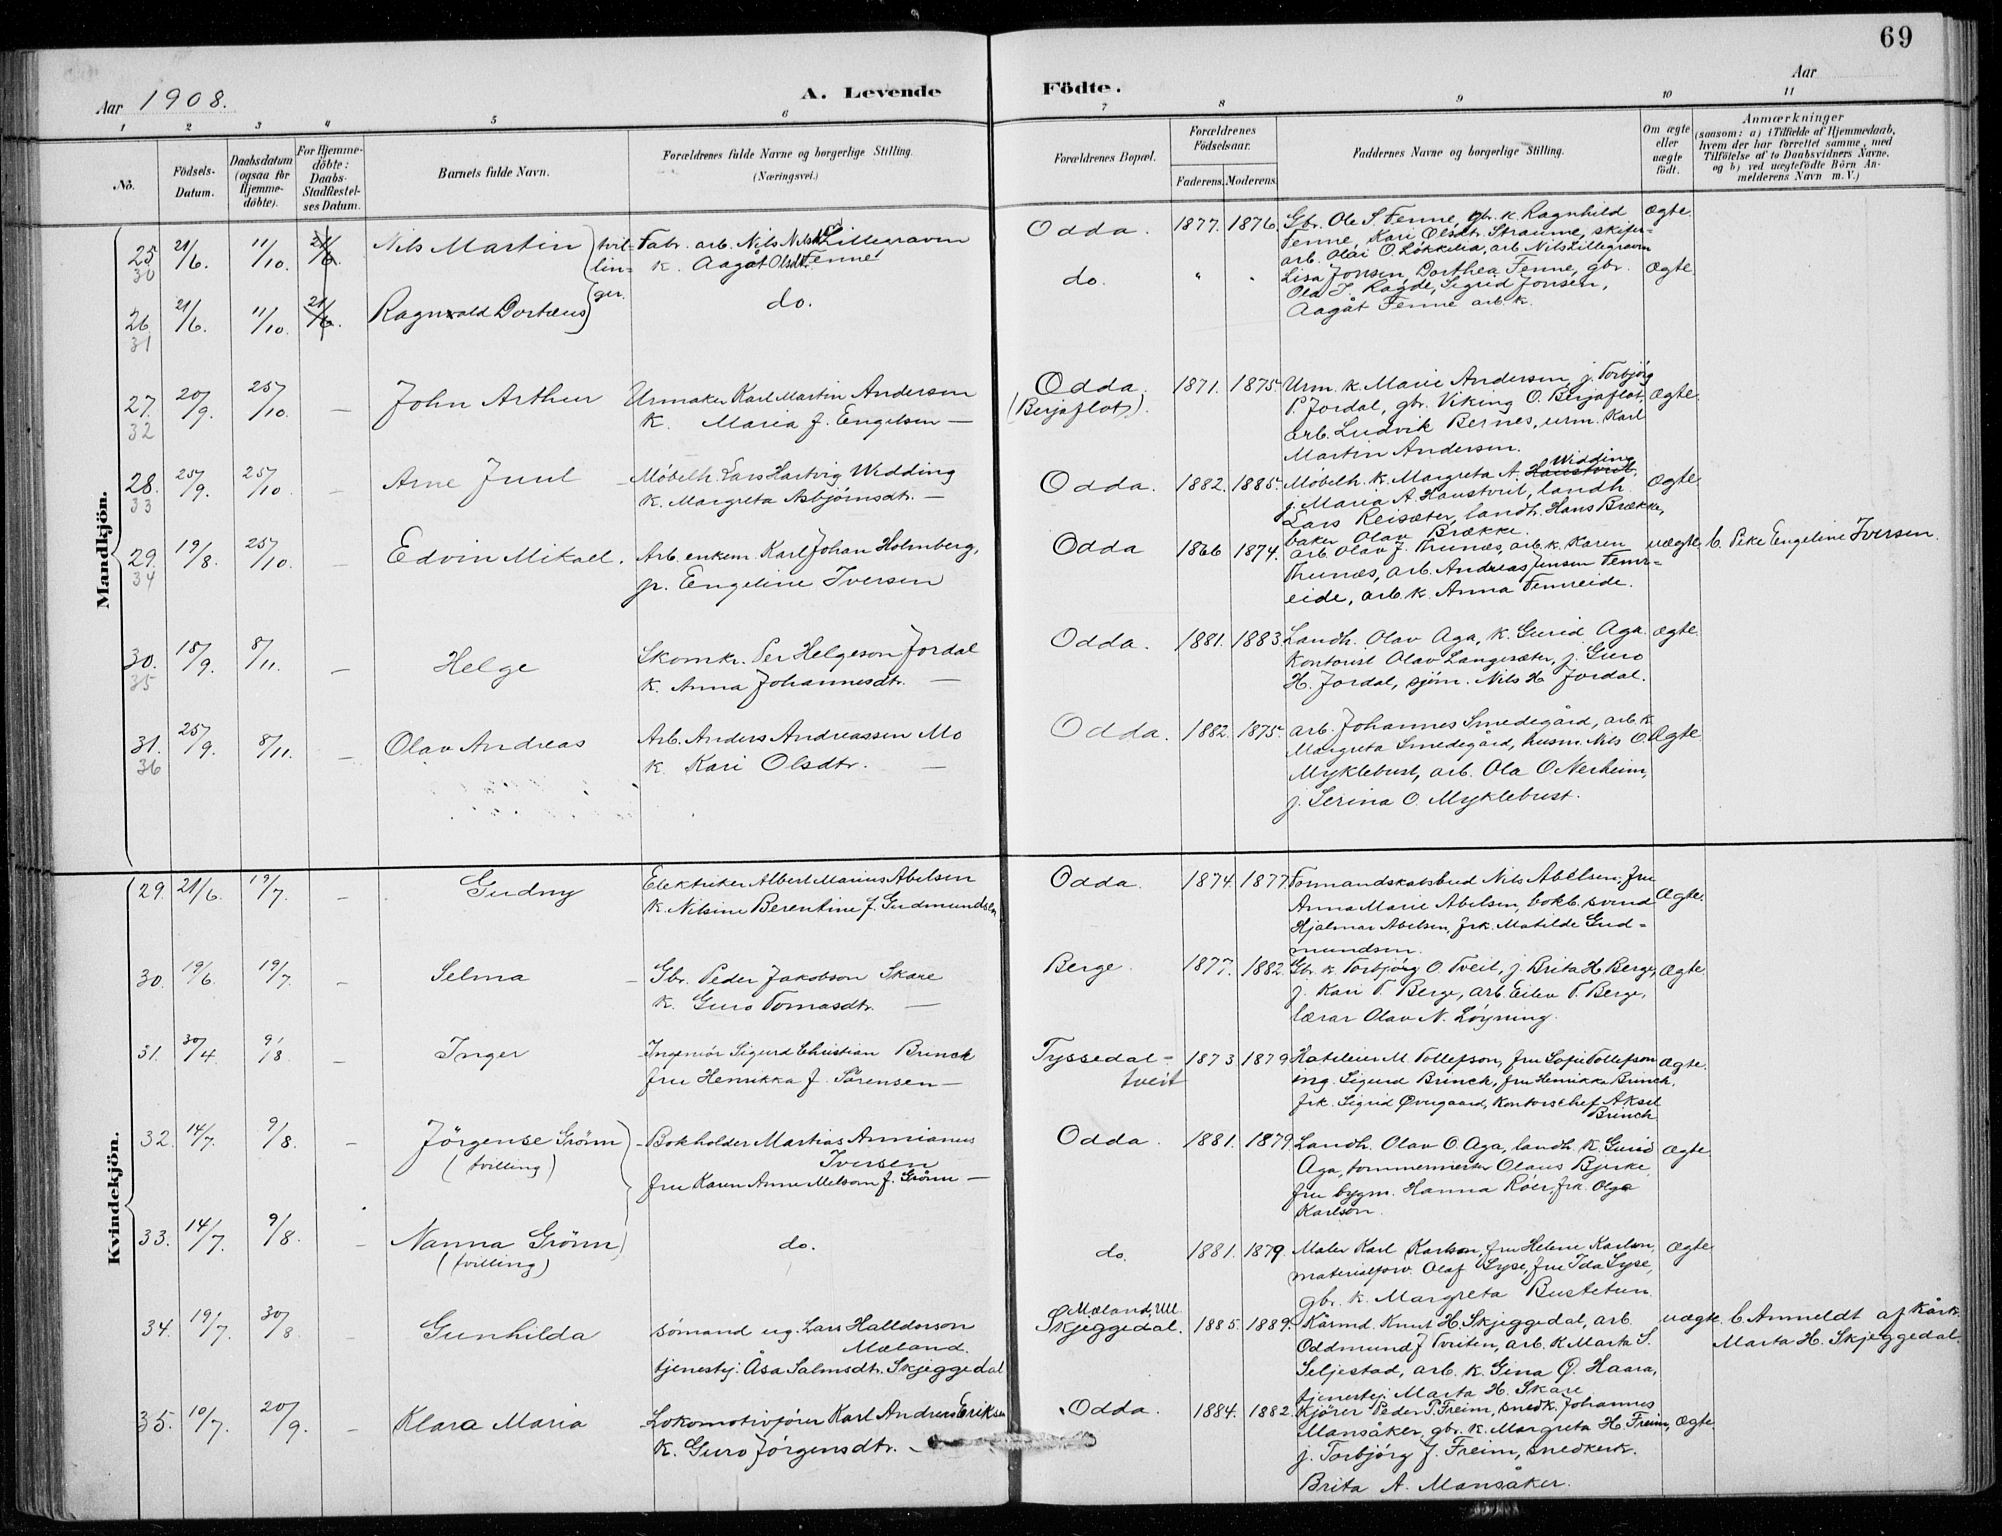 69
Aar 1908.
A. Levende Födte.
Aar
1 2 3 4 5 6 7 8 9 10 11
No.
Födsels-Datum.
Daabsdatum (ogsaa for Hjemme-döbte).
For Hjemme-döbte: Daabs-Stadfæstel-ses Datum.
Barnets fulde Navn.
Forældrenes fulde Navne og borgerlige Stilling.
(Næringsvei.)
Forældrenes Bopæl.
Forældrenes Födselsaar.
Faderens. Moderens.
Faddernes Navne og borgerlige Stilling.
Om ægte eller uægte födt.
Anmærkninger
(saasom: a) i Tilfælde af Hjemmedaab,
hvem der har forrettet samme, med
Tilföielse af to Daabsvidners Navne,
og b) ved uægtefödte Börn An-
melderens Navn m. V.)
Mandkjön.
25 30 21/6. 11/10. 21/6 Nils Martin tvil-lin-ger. Fabr. arb. Nils Nilsen Lillegraven
k. Aagåt Olsdtr. Fenne
Odda. 1877. 1876. Gbr. Ole S. Fenne, gbr. k. Ragnhild
Fenne, Kari Olsdtr. Straume, skifer-
arb. Olai O. Løkkelia, arb. Nils Lillegraven
Ægte.
26 31 21/6. 11/10. 21/6. Ragnvald Dorteus do.
do. " " Lisa Jonsen, Dorthea Fenne, gbr.
Ola T. Ragde, Sigrid Jonsen,
Aagåt Fenne arb. k.
Ægte.
27. 32 20/9. 25/10. — John Arthur Urmaker Karl Martin Andersen
k. Maria f. Engelsen —
Odda. (Berjaflot). 1871. 1875. Urm. k. Marie Andersen, j. Torbjörg
P. Jordal, gbr. Viking O. Berjaflot,
arb. Ludvik Bernes, urm. Karl
Martin Andersen.
Ægte.
28. 33 25/9. 25/10. — Arne Juul Möbelh. Lars Hartvig Widding
k. Margreta Asbjörnsdt. —
Odda. 1882. 1885. Möbelh. k. Margreta A. Widding
j. Maria A. Haustveit, landh.
Lars Reisæter, landh. Hans Brække,
baker Olav Brække.
Ægte.
29. 34 19/8. 25/10. — Edvin Mikael. Arb. enkem. Karl Johan Holmberg,
p. Engeline Iversen
Odda 1866 1874. arb. Olav J. Thunæs, arb. k. Karen
Thunæs, arb. Andreas Jensen Femr-
eide, arb. k. Anna Femreide.
uægte b. Pike Engeline Iversen.
30. 35 18/9. 8/11. — Helge Skomkr. Per Helgeson Jordal
k. Anna Johannesdt. —
Odda. 1881. 1883. Landh. Olav Aga, k. Gurid Aga.
Kontorist Olav Langesæter, j. Guro
H. Jordal, sjöm. Nils H. Jordal.
Ægte.
31. 36 25/9. 8/11. — Olav Andreas Arb. Anders Andreassen Mo
k. Kari Olsdtr. —
Odda. 1882. 1875. arb. Johannes Smedegård, arb. k.
Margreta Smedegård, husm. Nils O.
Myklebust, arb. Ola O. Nerheim,
j. Serina O. Myklebust.
Ægte.
Kvindekjön.
29. 21/6. 19/7. — Gudny Elektriker Albert Marius Abelsen
k. Nilsine Berentine f. Gudmundsen
Odda. 1874. 1877. Formandskabsbud Nils Abelsen, fru
Anna Marie Abelsen, bokb. svend
Hjalmar Abelsen, frk. Matilde Gud-
mundsen.
Ægte.
30. 19/6. 19/7. — Selma Gbr. Peder Jakobson Skare
k. Guro Tomasdtr. —
Berge. 1877. 1882. Gbr. k. Torbjörg O. Tveit, j. Brita H. Berge,
j. Kari T. Berge, arb. Eilev T. Berge,
lærar Olav N. Löyning.
Ægte
31. 30/4. 9/8. — Inger Ingeniör Sigurd Christian Brinch
fru Henrikka f. Sörensen —
Tyssedal-tveit 1873 1879 M. Tollefson, fru Sofie Tollefson
ing. Sigurd Brinch, fru Henrikka Brinch,
frk. Sigrid Øvergaard, kontorschef Aksel
Brinch
Ægte.
32. 14/7. 9/8. — Jörgense Grönn (tvilling) Bokholder Martias Annianus
Iversen
fru Karen Anne Milson f. Grönn —
Odda. 1881. 1879. Landh. Olav O. Aga, landh. k. Gurid
Aga, tommermester Olaus Bjerke,
fru bygm. Hanna Röer, frk. Olga
Karlson.
Ægte
33. 14/7. 9/8. — Nanna Grönn (tvilling) do.
do. 1881. 1879. Maler Karl Karlson, fru Helene Karlson,
materialforv. Olaf Lyse, fru Ida Lyse,
gbr. k. Margreta Bustetun.
Ægte
34. 19/7. 30/8. Gunhilda sömand ug. Lars Halldorson
Mæland.
tjenestej: Åsa Salmsdt. Skjeggedal
Mæland, Ull. Skjeggedal. 1885. 1889. Kårmd. Knut H. Skjeggedal, arb.
Oddmund J. Tveiten, arb. k. Marta S.
Seljestad, arb. k. Gina Ö. Haara,
tjenestej. Marta H. Skare
uægte. b Anmeldt af kårk.
Marta H. Skjeggedal.
35. 10/7. 20/9. — Klara Maria Lokomotivförer Karl Andreas Eriksen
k. Guro Jörgensdtr. —
Odda. 1884. 1882. Kjörer Peder P. Freim, snedk. Johannes
Mansåker, gbr. k. Margreta H. Freim,
j. Torbjörg J. Freim, snedkerk.
Brita A. Mansåker.
Ægte.